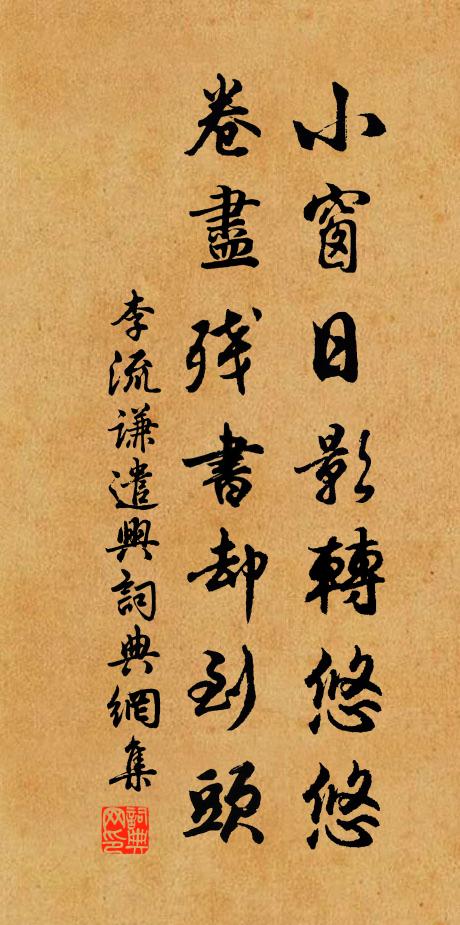 小窗日影轉悠悠
卷盡殘書却到頭
李流謙遣興詞典網集
詞典网印